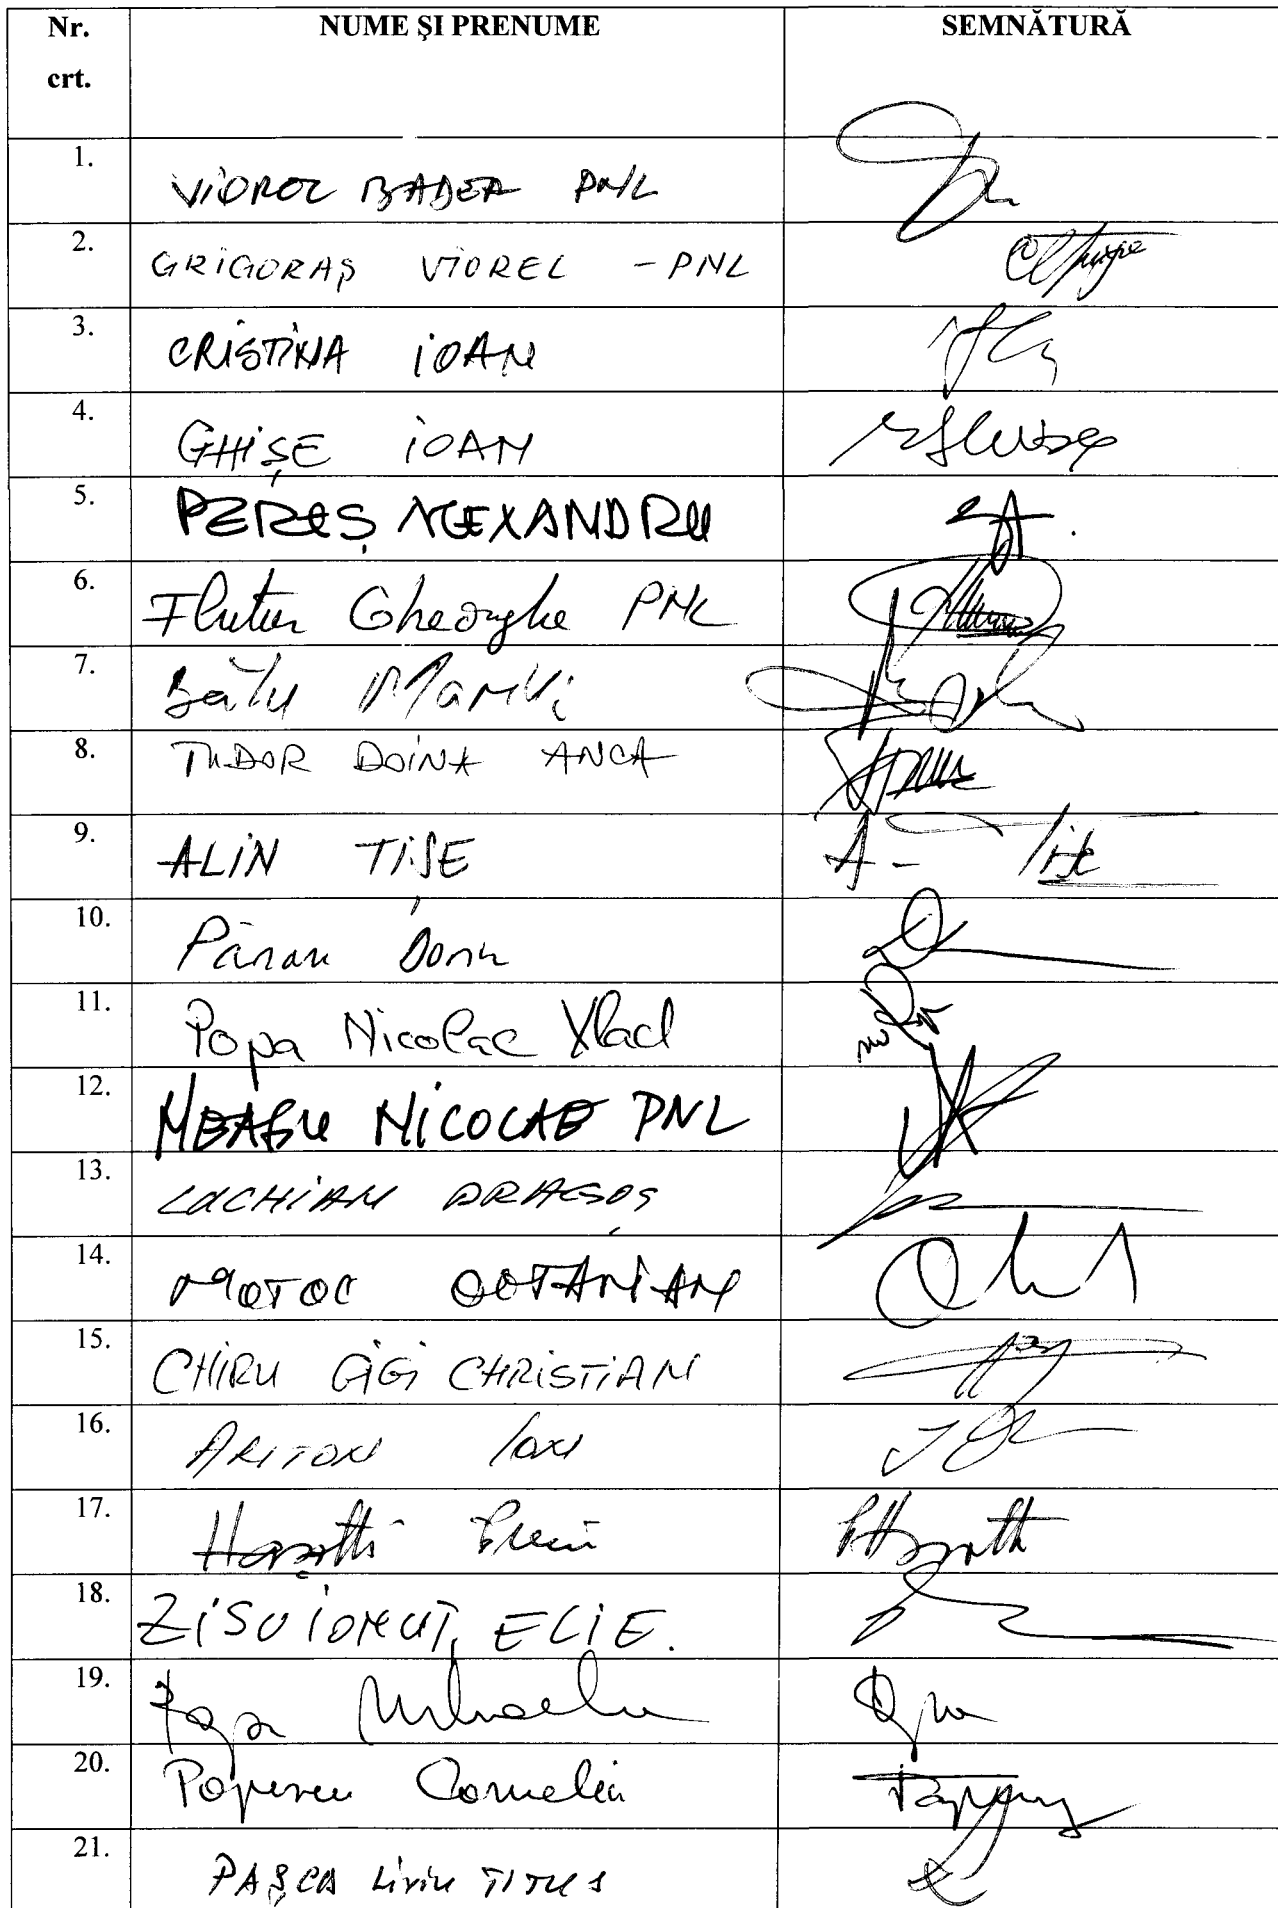 Nr. crt. NUME ŞI PRENUME SEMNĂTURĂ
1. VIOREL BADEA PNL
2. GRIGORAŞ VIOREL - PNL
3. CRISTINA IOAN
4. GHIŞE IOAN
5. PEREŞ ALEXANDRU
6. Flutur Gheorghe PNL
7. Bălu Marius
8. TUDOR DOINA ANCA
9. ALIN TIŞE A- Tişe
10. Păran Dorin
11. Popa Nicolae Vlad
12. NEAGU NICOLAE PNL
13. LUCHIAN DRAGOŞ
14. MOTOC OCTAVIAN
15. CHIRU GIGI CHRISTIAN
16. ARITON Ion
17. Haşotti Puiu
18. ZISU IONUŢ ELIE.
19. Popa Mihaela
20. Popescu Corneliu
21. PAŞCA Liviu TITUS